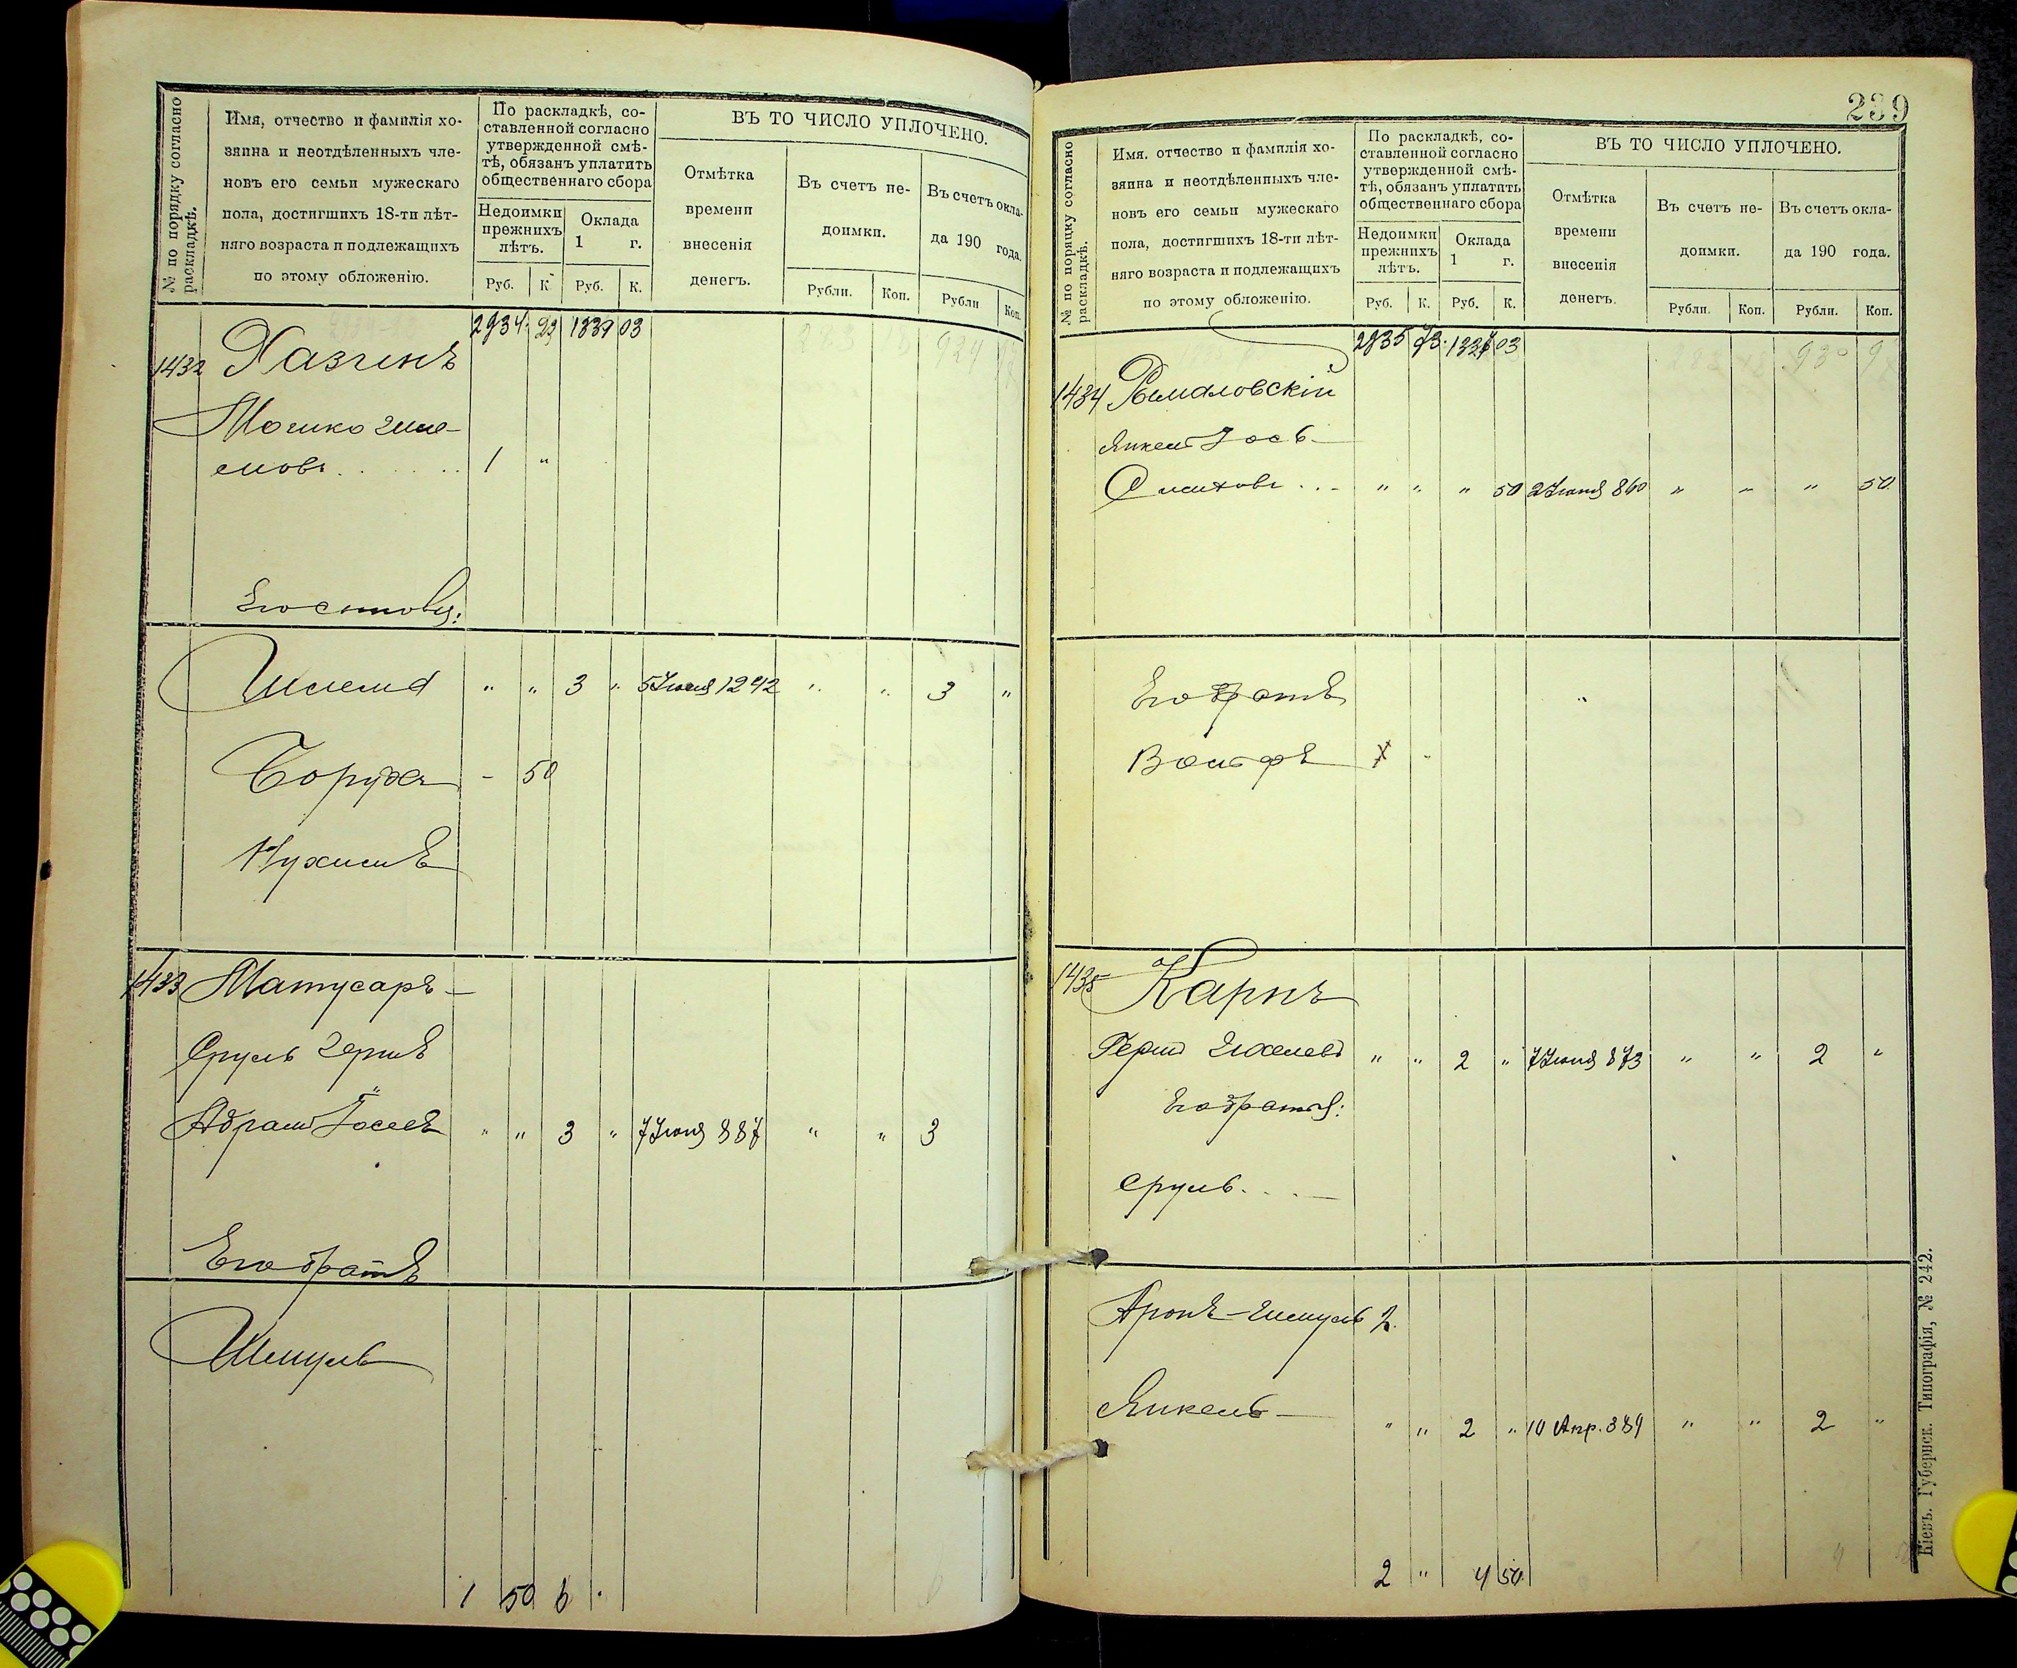 № по порядку согласно раскладкѣ.
Имя, отчество и фамилія хо-
зяина и неотдѣленныхъ чле-
новъ его семьи мужескаго
пола, достигшихъ 18-ти лѣт-
няго возраста и подлежащихъ
по этому обложенію.
По раскладкѣ, со-
ставленной согласно
утвержденной смѣ-
тѣ, обязанъ уплатить
общественнаго сбора
Недоимки
прежнихъ
лѣтъ.
Оклада
1 г.
Руб. К Руб. К.
ВЪ ТО ЧИСЛО УПЛОЧЕНО.
Отмѣтка
времени
внесенія
денегъ.
Въ счетъ не-
доимки.
Въ счетъ окла-
да 190 года.
Рубли. Коп. Рубли Коп.
1432 Хазинъ
Мошко
1 "
Его сыновья:
Шлема " " 3 " 5 Іюня 1292 " " 3 "
Борухъ - 50
Нухимъ
1433 Матусаръ
Сруль Герш
Абрам Іосев " " 3 " 7 Іюня 887 " " 3
Его братъ
Шмуль
1 50 6
239
№ по порядку согласно раскладкѣ.
Имя. отчество и фамилія хо-
зяина и неотдѣленныхъ чле-
новъ его семьи мужескаго
пола, достигшихъ 18-ти лѣт-
няго возраста и подлежащихъ
по этому обложенію.
По раскладкѣ, со-
ставленной согласно
утвержденной смѣ-
тѣ, обязанъ уплатить
общественнаго сбора
Недоимки
прежнихъ
лѣтъ.
Оклада
1 г.
Руб. К. Руб. К.
ВЪ ТО ЧИСЛО УПЛОЧЕНО.
Отмѣтка
времени
внесенія
денегъ.
Въ счетъ не-
доимки.
Въ счетъ окла-
да 190 года.
Рубли. Коп. Рубли. Коп.
1434
Янкель Іось
" " " 50 2 Іюня 860 " " " 50
Его братъ
Вольфъ
1435 Карпъ
Герш " " 2 " 7 Іюня 873 " " 2 "
Его братья:
Сруль
Аронъ-Шмуль 2.
Янкель " " 2 " 10 Апр. 389 " " 2 "
2 " 4 50
Кіевъ. Губернск. Типографія, № 242.